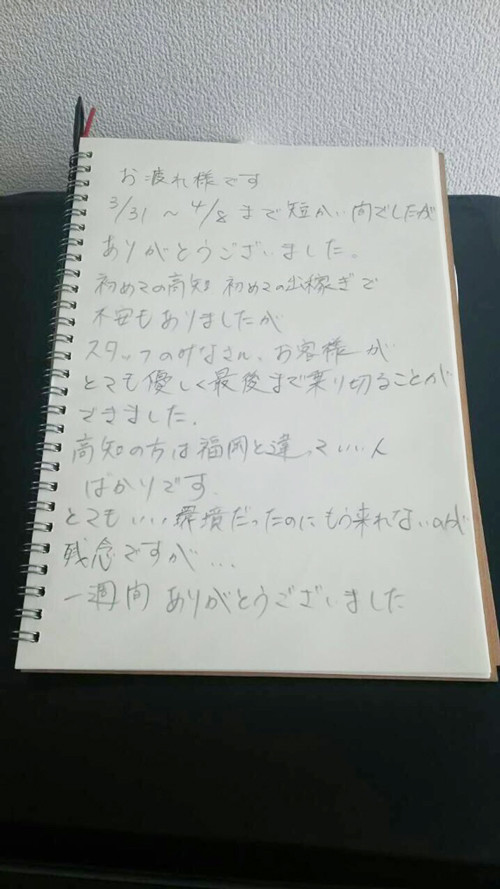 お疲れ様です
3/31 ~ 4/8 まで短かい間でしたが
ありがとうございました。
初めての高知 初めての出稼ぎで
不安もありましたが
スタッフのみなさん、お客様が
とても優しく最後まで乗り切ることが
できました。
高知の方は福岡と違っていい人
ばかりです。
とてもいい環境だったのにもう来れないのが
残念ですが...
一週間 ありがとうございました